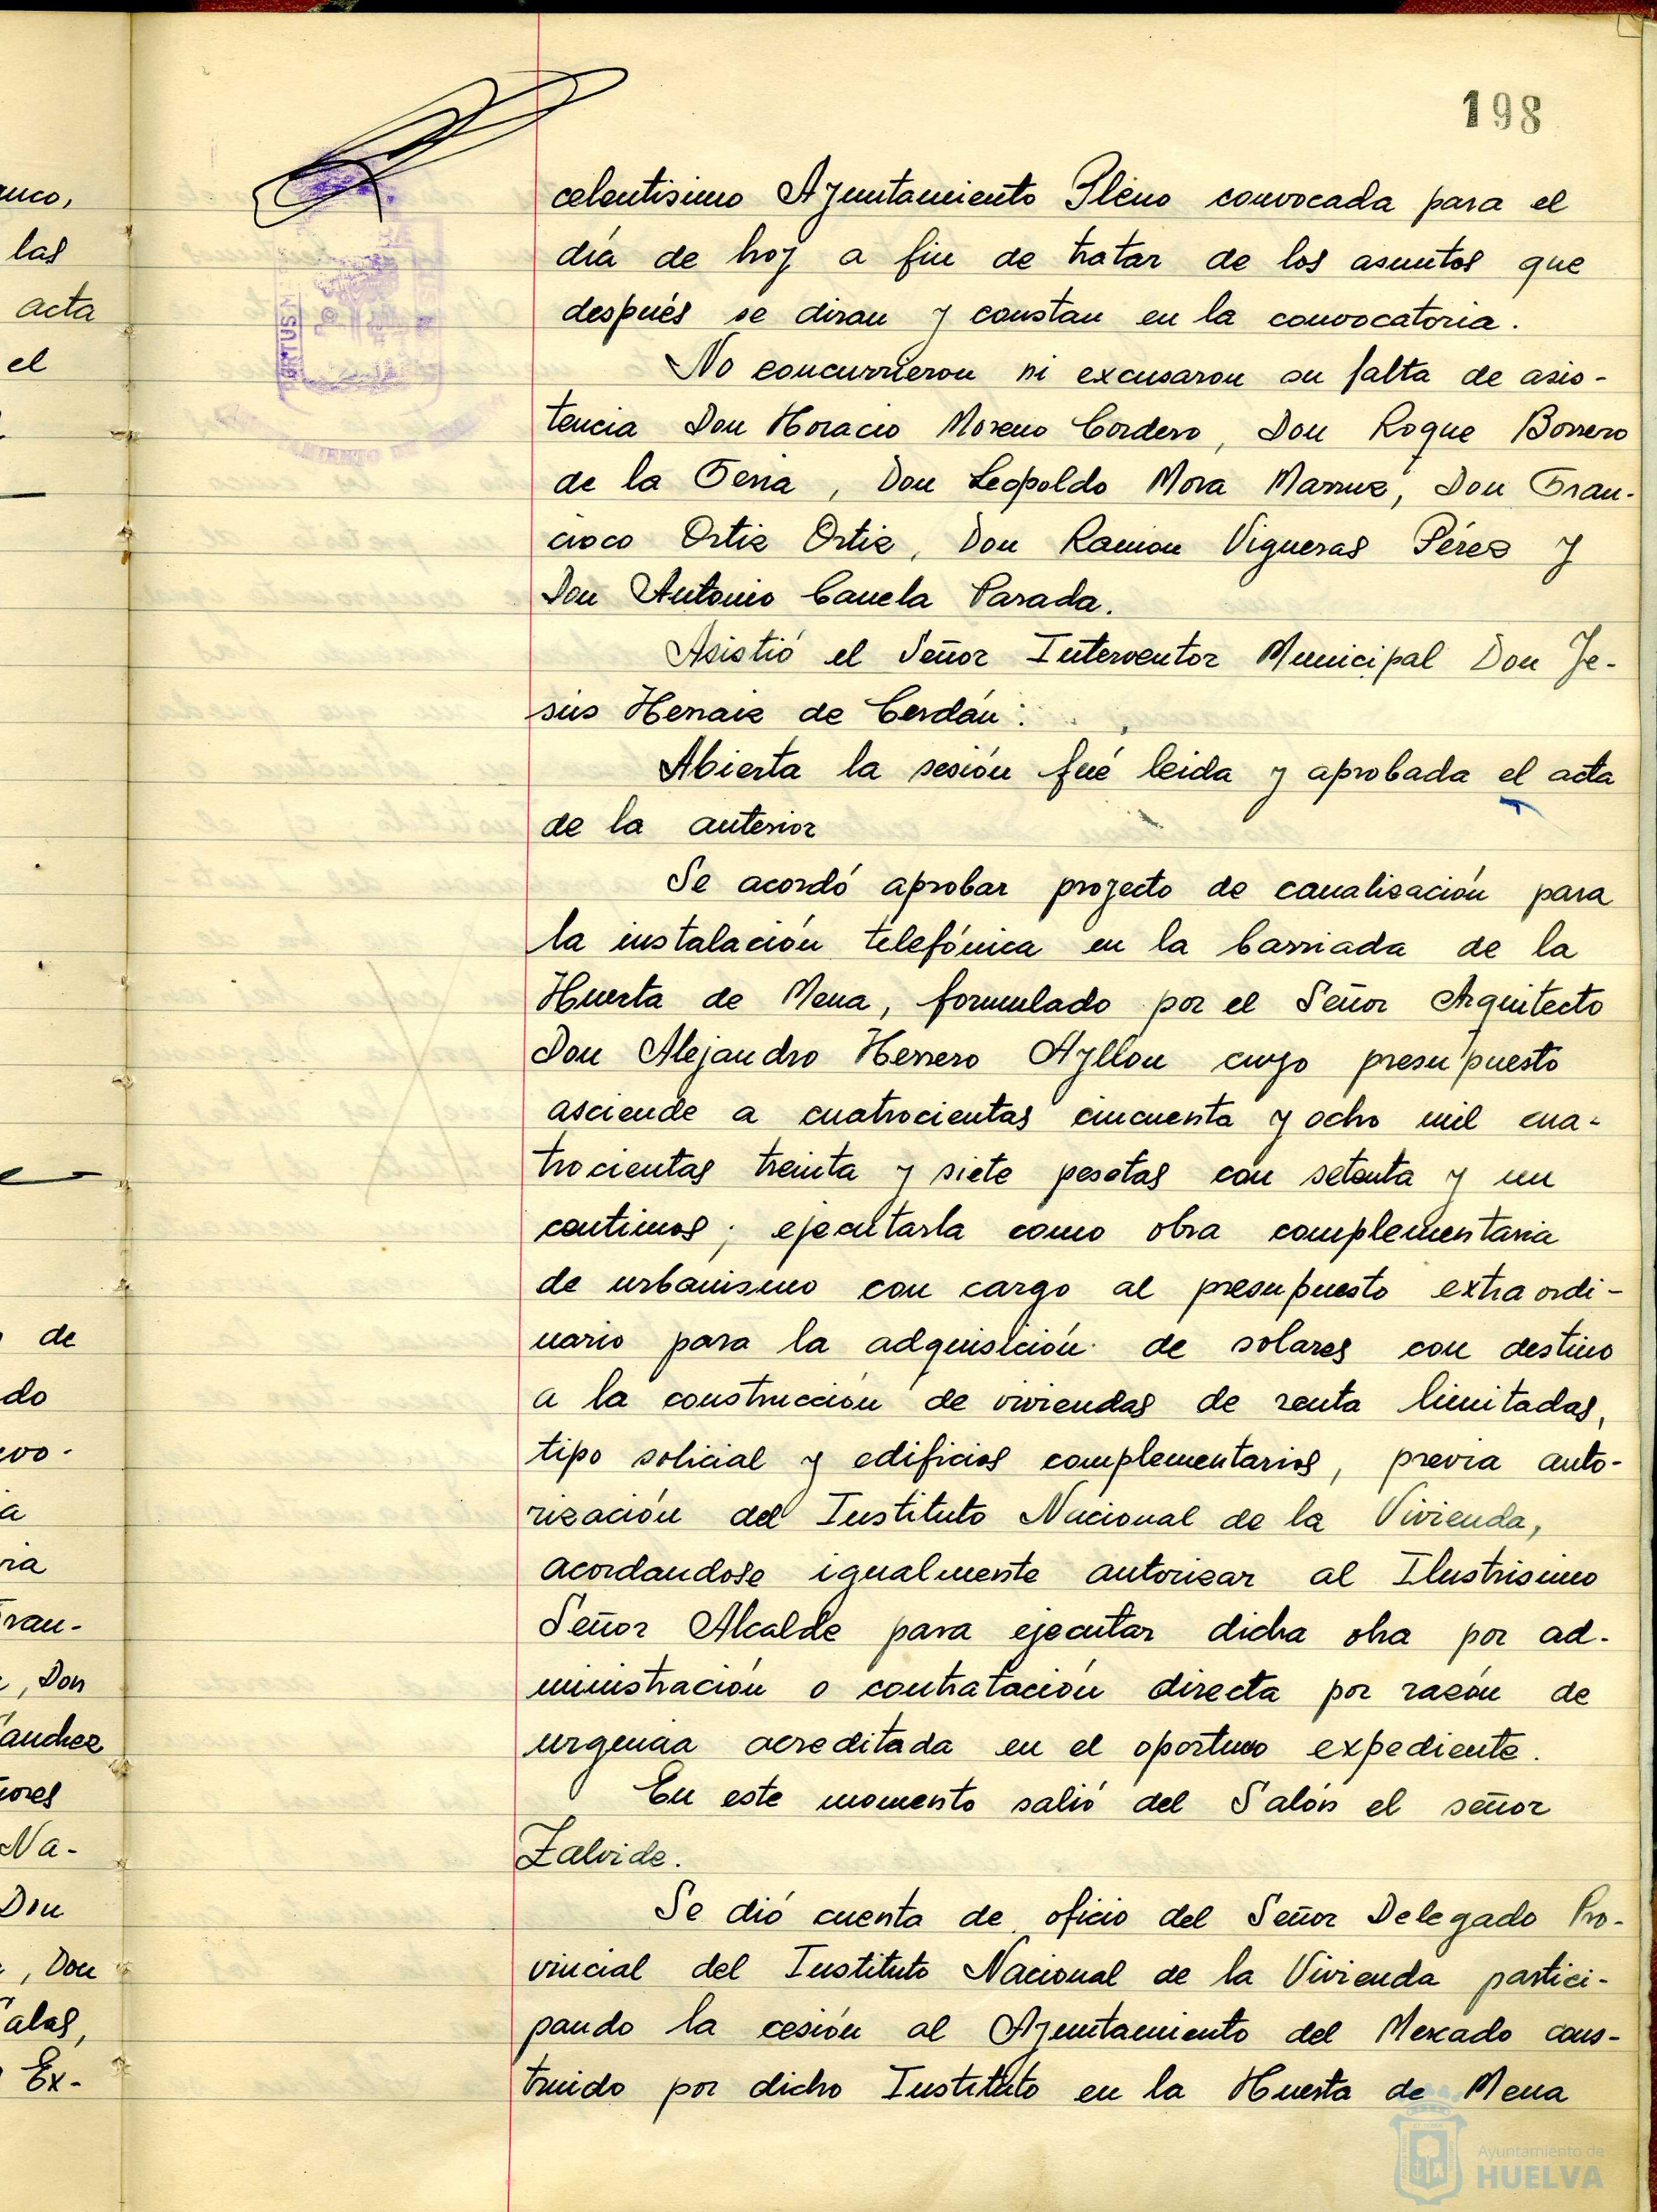 198
celentisimo Ayuntamiento Pleno convocada para el
día de hoy a fin de tratar de los asuntos que
después se diran y constan en la convocatoria.
No concurrieron ni excusaron su falta de asis-
tencia Don Horacio Moreno Cordero, Don Roque Borrero
de la Feria, Don Leopoldo Mora Marruz, Don Fran-
cisco Ortiz Ortiz, Don Ramon Vigueras Pérez y
Don Antonio Canela Parada.
Asistió el Señor Interventor Municipal Don Je-
sús Hernaiz de Cerdán.
Abierta la sesión fué leida y aprobada el acta
de la anterior
Se acordó aprobar proyecto de canalización para
la instalación telefónica en la barriada de la
Huerta de Mena, formulado por el Señor Arquitecto
Don Alejandro Herrero Ayllon cuyo presupuesto
asciende a cuatrocientas cincuenta y ocho mil cua-
trocientas treinta y siete pesetas con setenta y un
centimos; ejecutarla como obra complementaria
de urbanismo con cargo al presupuesto extraordi-
nario para la adquisición de solares con destino
a la construcción de viviendas de renta limitadas,
tipo solicial y edificios complementarios, previa auto-
rización del Instituto Nacional de la Vivienda,
acordandose igualmente autorizar al Ilustrisimo
Señor Alcalde para ejecutar dicha obra por ad-
ministración o contratación directa por razón de
urgencia acreditada en el oportuno expediente.
En este momento salió del Salón el señor
Zalvide.
Se dió cuenta de oficio del Señor Delegado Pro-
vincial del Instituto Nacional de la Vivienda partici-
pando la cesión al Ayuntamiento del Mercado cons-
truido por dicho Instituto en la Huerta de Mena
las
acta
el
de
do
Don
Don
Ex-
Ayuntamiento de
HUELVA